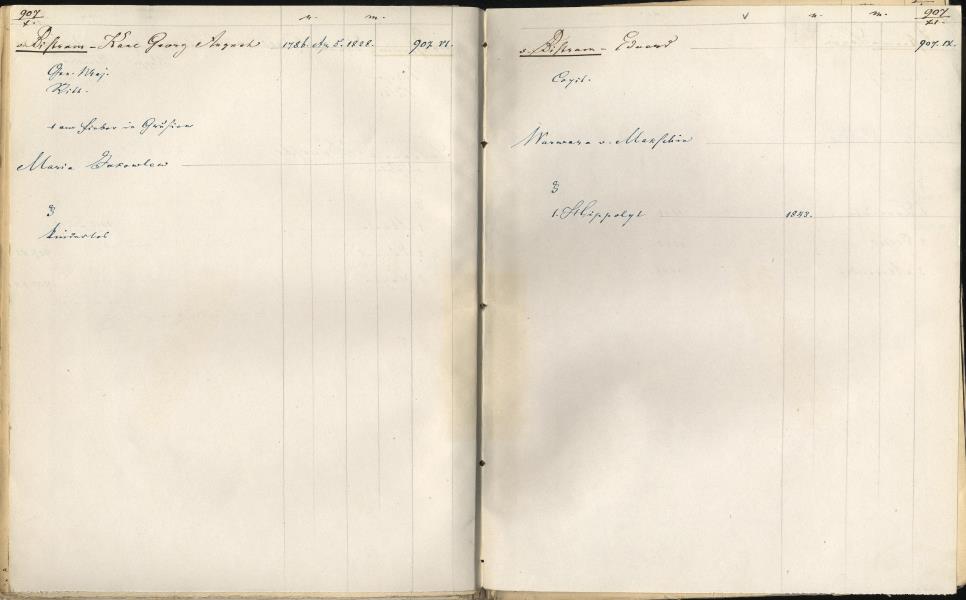 907
X.
n. m.
v. Bistram - Karl Georg August 1786. Ap. 5. 1828. 907. VI.
Gen. Maj.
Ritt.
† am Fieber in Grusien
Maria Jakowlew
kinderlos
907
XI.
v n. m.
v. Bistram - Eduard 907. IX.
Capit.
Warwara v. Makschin
1. Hippolyt 1843.